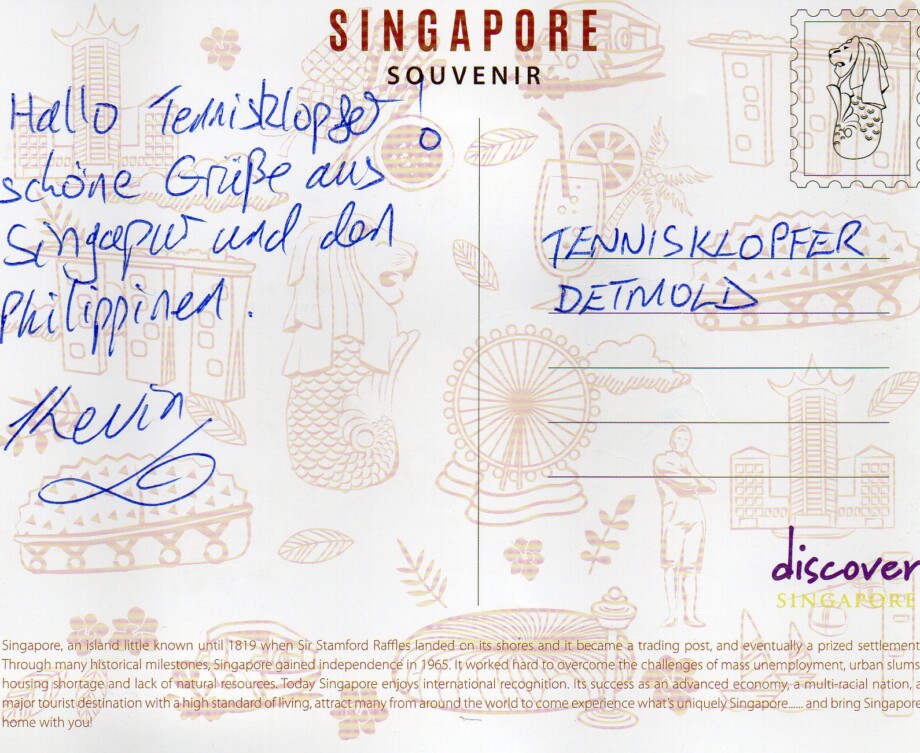 SINGAPORE
SOUVENIR
Hallo Tennisklopfer!
schöne Grüße aus
Singapur und den
Philippinen.
Kevin
TENNISKLOPFER
DETMOLD
discover
SINGAPORE
Singapore, an island little known until 1819 when Sir Stamford Raffles landed on its shores and it became a trading post, and eventually a prized settlement
Through many historical milestones, Singapore gained independence in 1965. It worked hard to overcome the challenges of mass unemployment, urban slums
housing shortage and lack of natural resources. Today Singapore enjoys international recognition. Its success as an advanced economy, a multi-racial nation, a
major tourist destination with a high standard of living, attract many from around the world to come experience what's uniquely Singapore...... and bring Singapore
home with you!